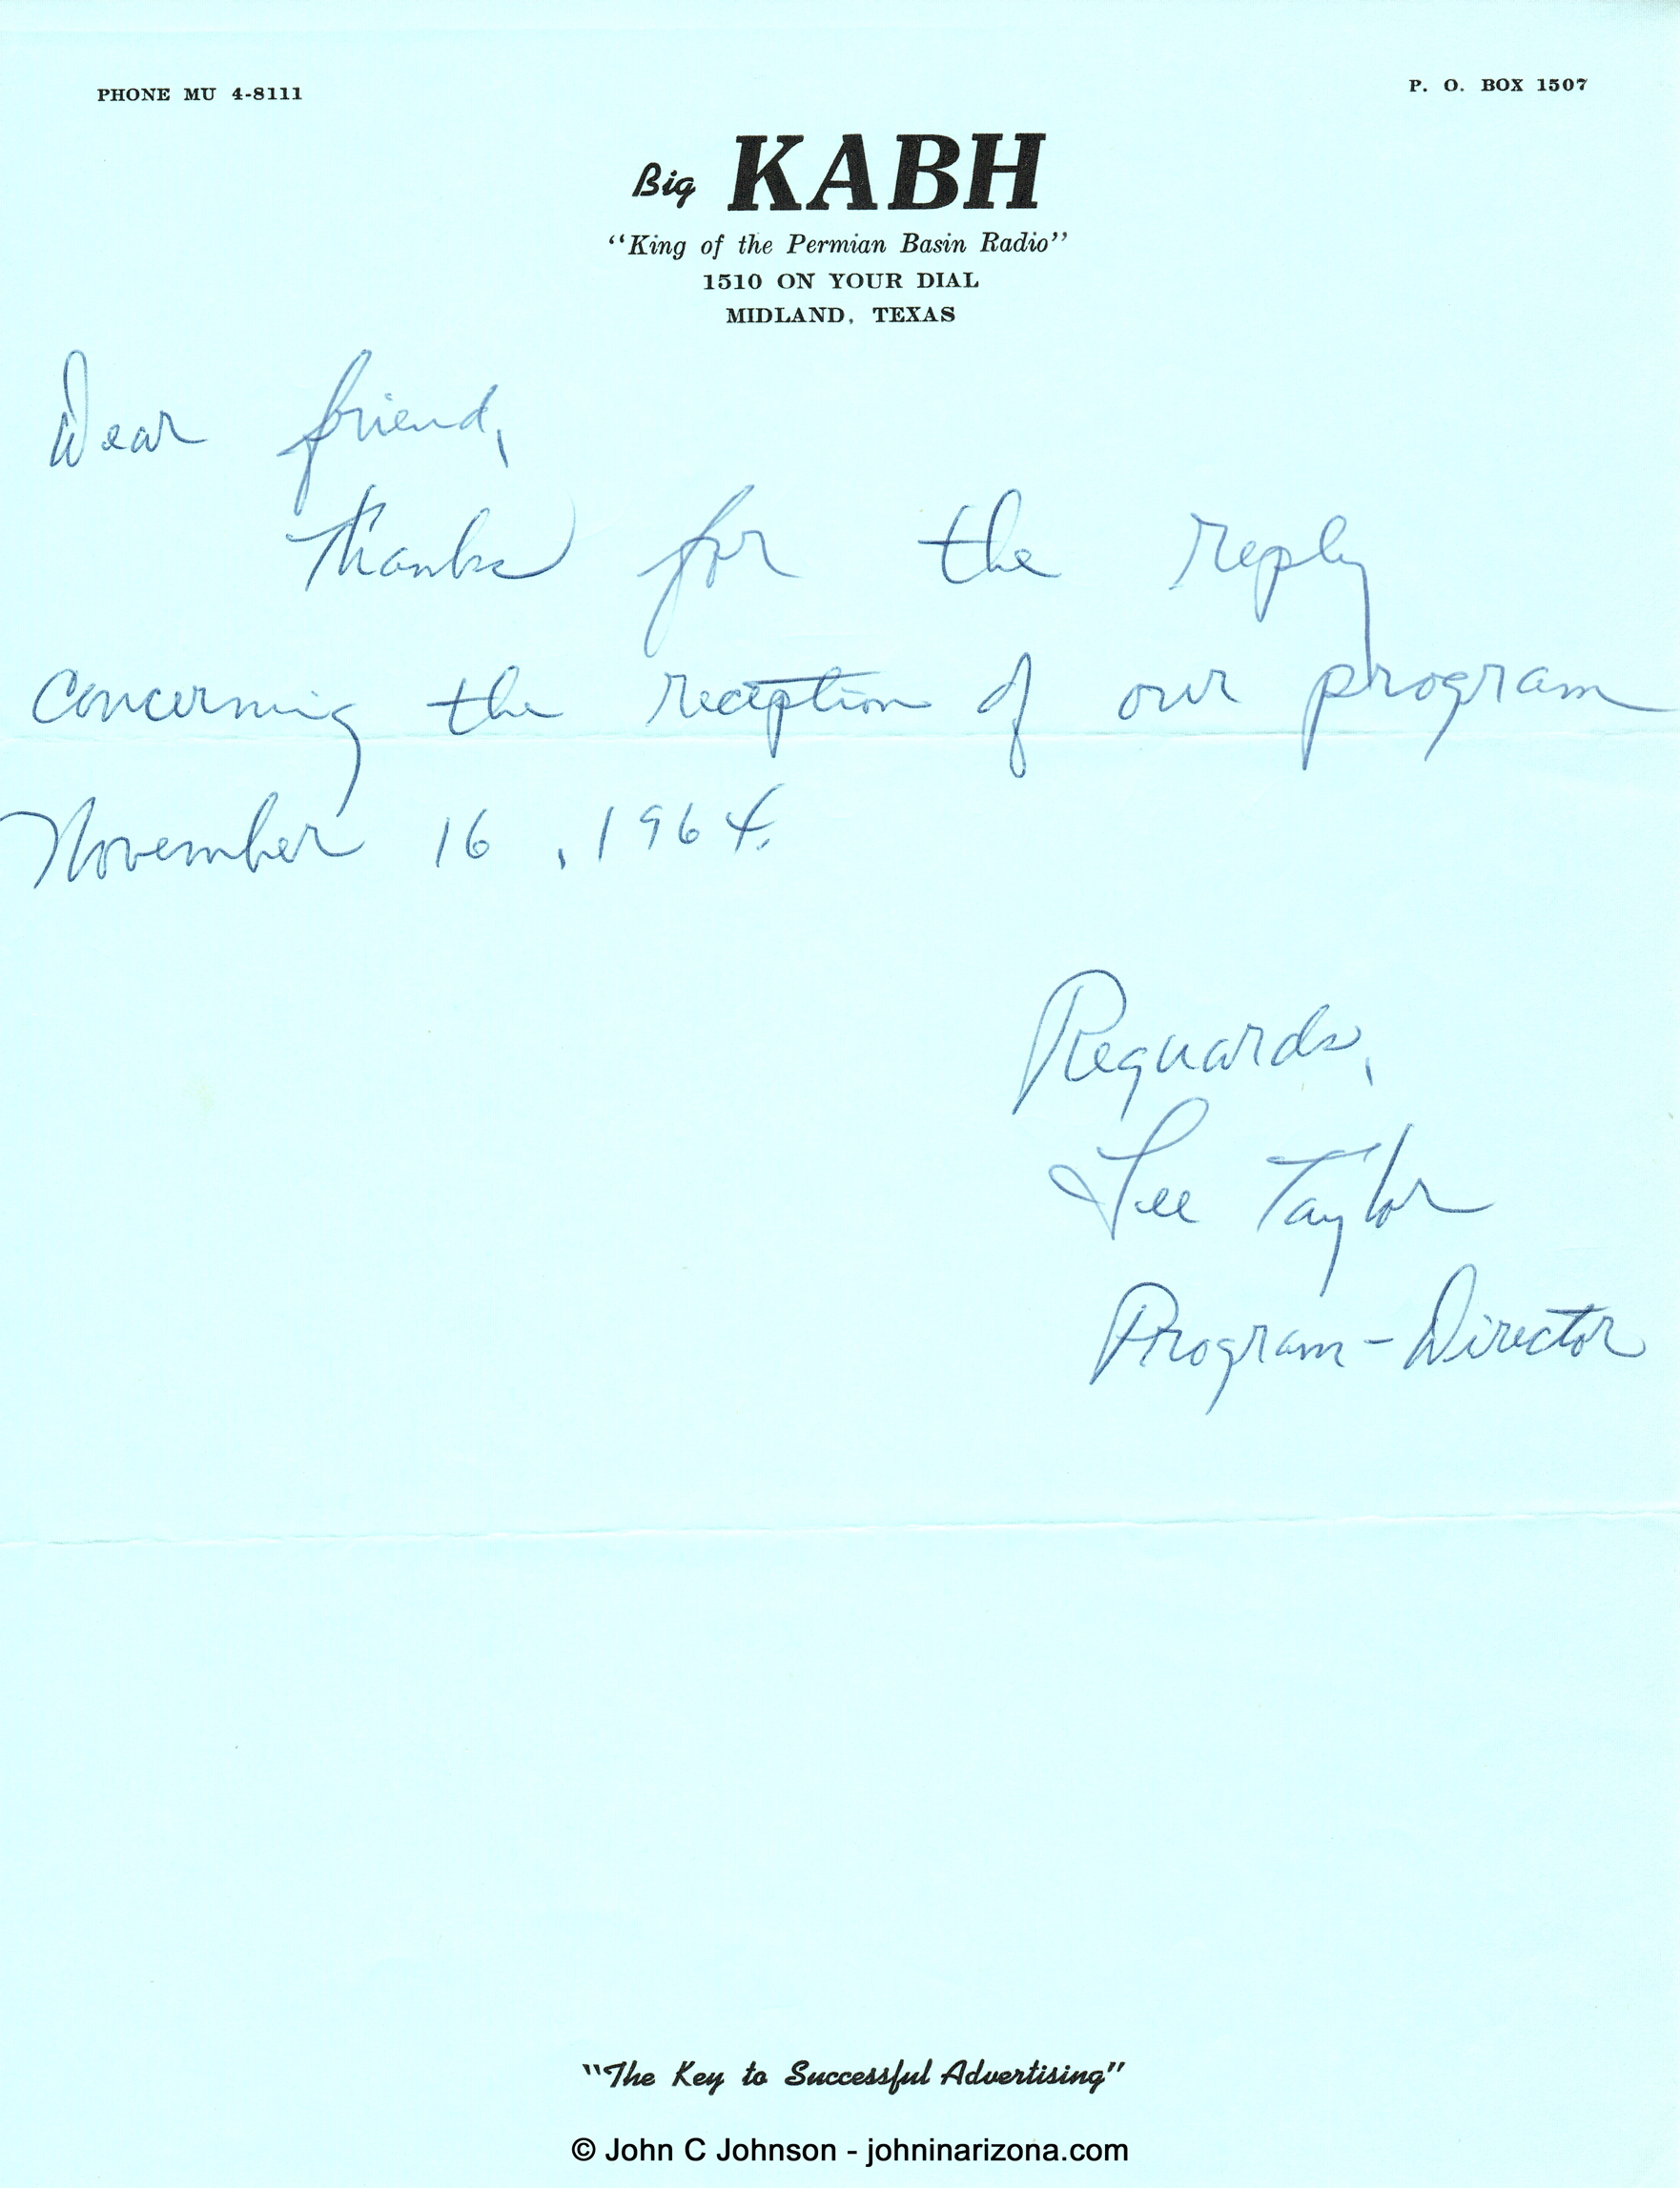 PHONE MU 4-8111
P. O. BOX 1507
Big KABH
"King of the Permian Basin Radio"
1510 ON YOUR DIAL
MIDLAND, TEXAS
Dear friend,
Thanks for the reply
concerning the reception of our program
November 16, 1964.
Reguards,
Lee Taylor
Program-Director
"The Key to Successful Advertising"
© John C Johnson - johninarizona.com